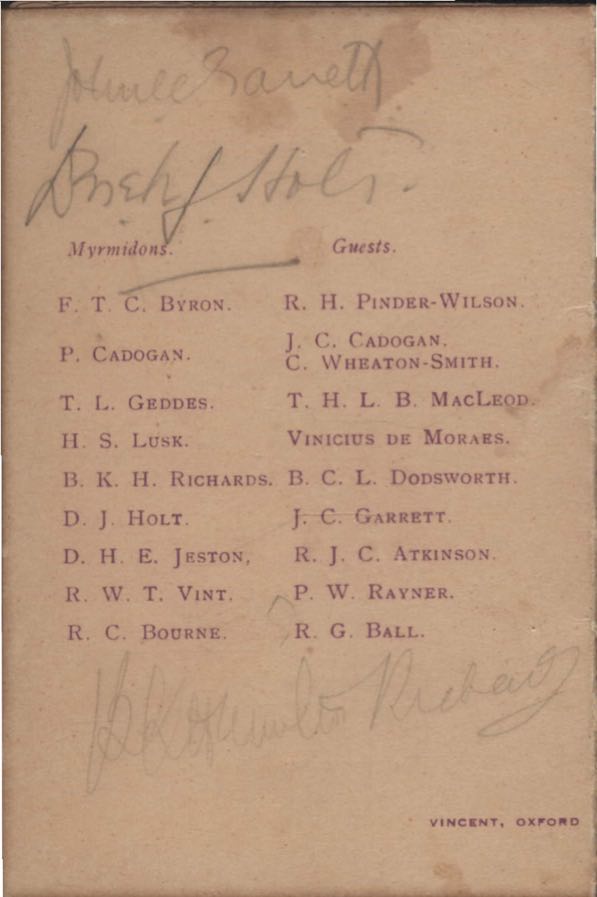 Holt.
Myrmidons. Guests.
F. T. C. BYRON. R. H. PINDER-WILSON.
P. CADOGAN. J. C. CADOGAN.
C. WHEATON-SMITH.
T. L. GEDDES. T. H. L. B. MACLEOD.
H. S. LUSK. VINICIUS DE MORAES.
B. K. H. RICHARDS. B. C. L. DODSWORTH.
D. J. HOLT. J. C. GARRETT.
D. H. E. JESTON, R. J. C. ATKINSON.
R. W. T. VINT. P. W. RAYNER.
R. C. BOURNE. R. G. BALL.
VINCENT, OXFORD